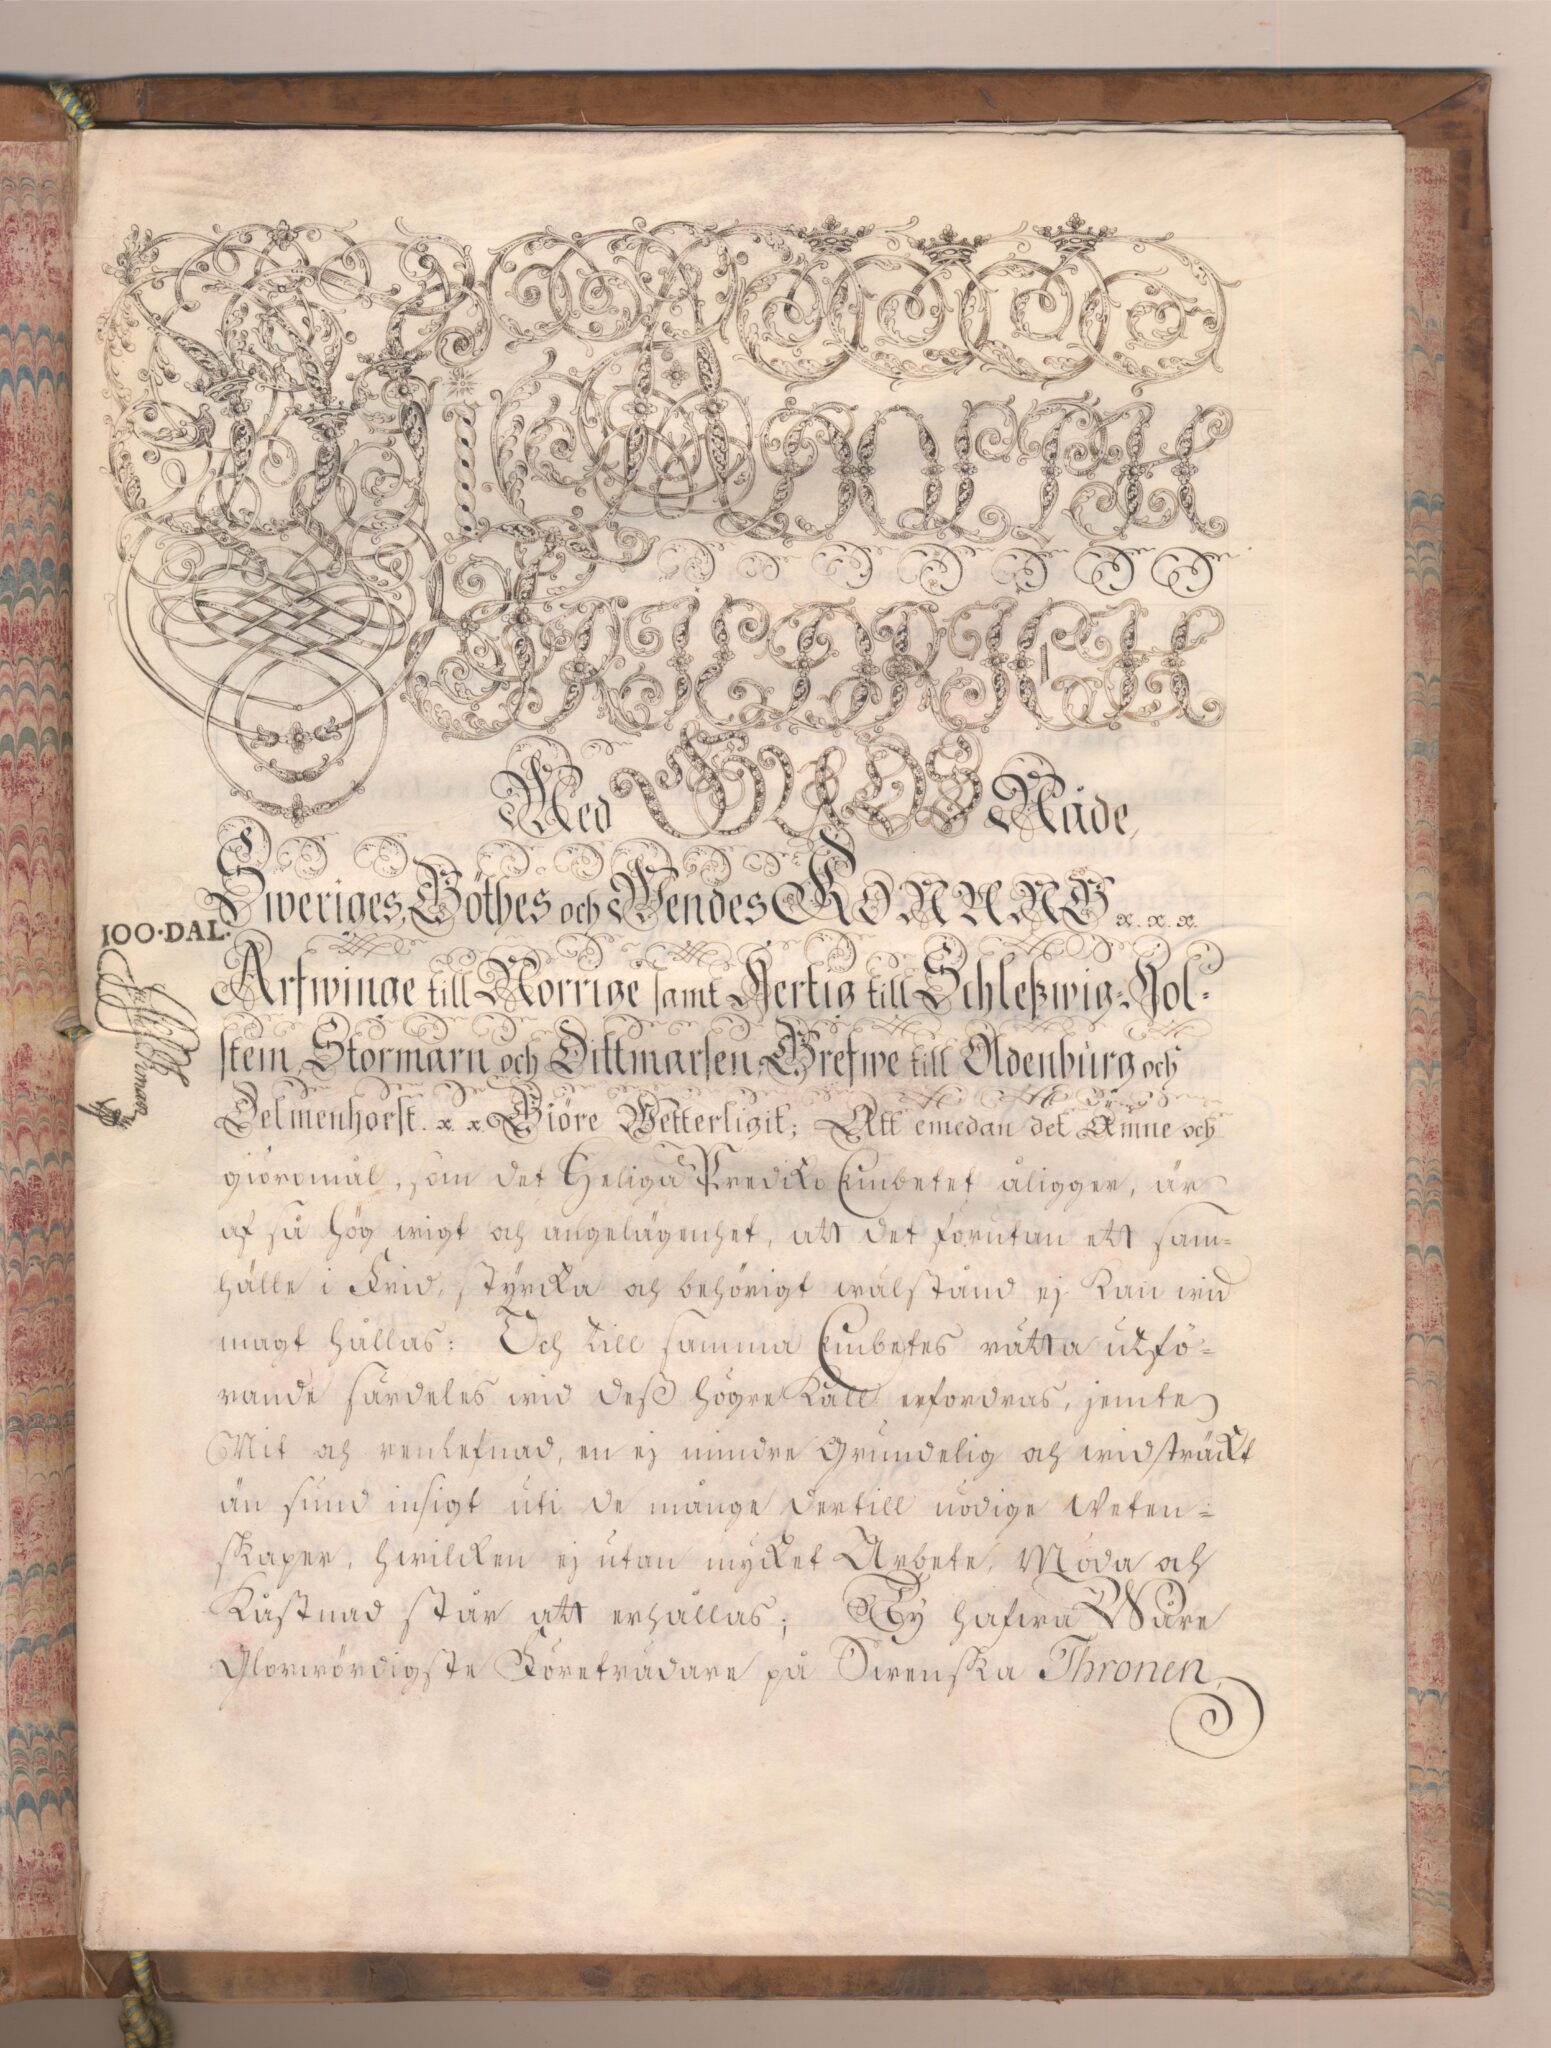 Wi ADOLPH
FRIEDRICH
Med GUDS Nåde,
Sweriges, Göthes och Wendes KONUNG x. x. x.
100·DAL·
Arfwinge till Norrige samt Hertig till Schleßwig-Hol-
stein, Stormarn och Dittmarsen, Grefwe till Oldenburg och
Delmenhorst. x. x. Giöre Wetterligit; Att emedan det Ämne och
giöromål, som det Heliga Prediko Embetet åligger, är
af så hög wigt och angelägenhet, att det förutan ett sam-
hälle i Frid, styrcka och behörigt wälstånd ej kan wid
magt hållas: Och till samma Embetes rätta utfö-
rande särdeles wid deß högre Kall erfordras, jemte
Nit och renlefnad, en ej mindre grundelig och widsträckt
än sund insigt uti de månge dertill nödige Weten-
skaper, hwilcken ej utan mycket Arbete, Möda och
Kåstnad står att erhållas; Ty hafwa Wåre
Glorwördigste Företrädare på Swenska Thronen,